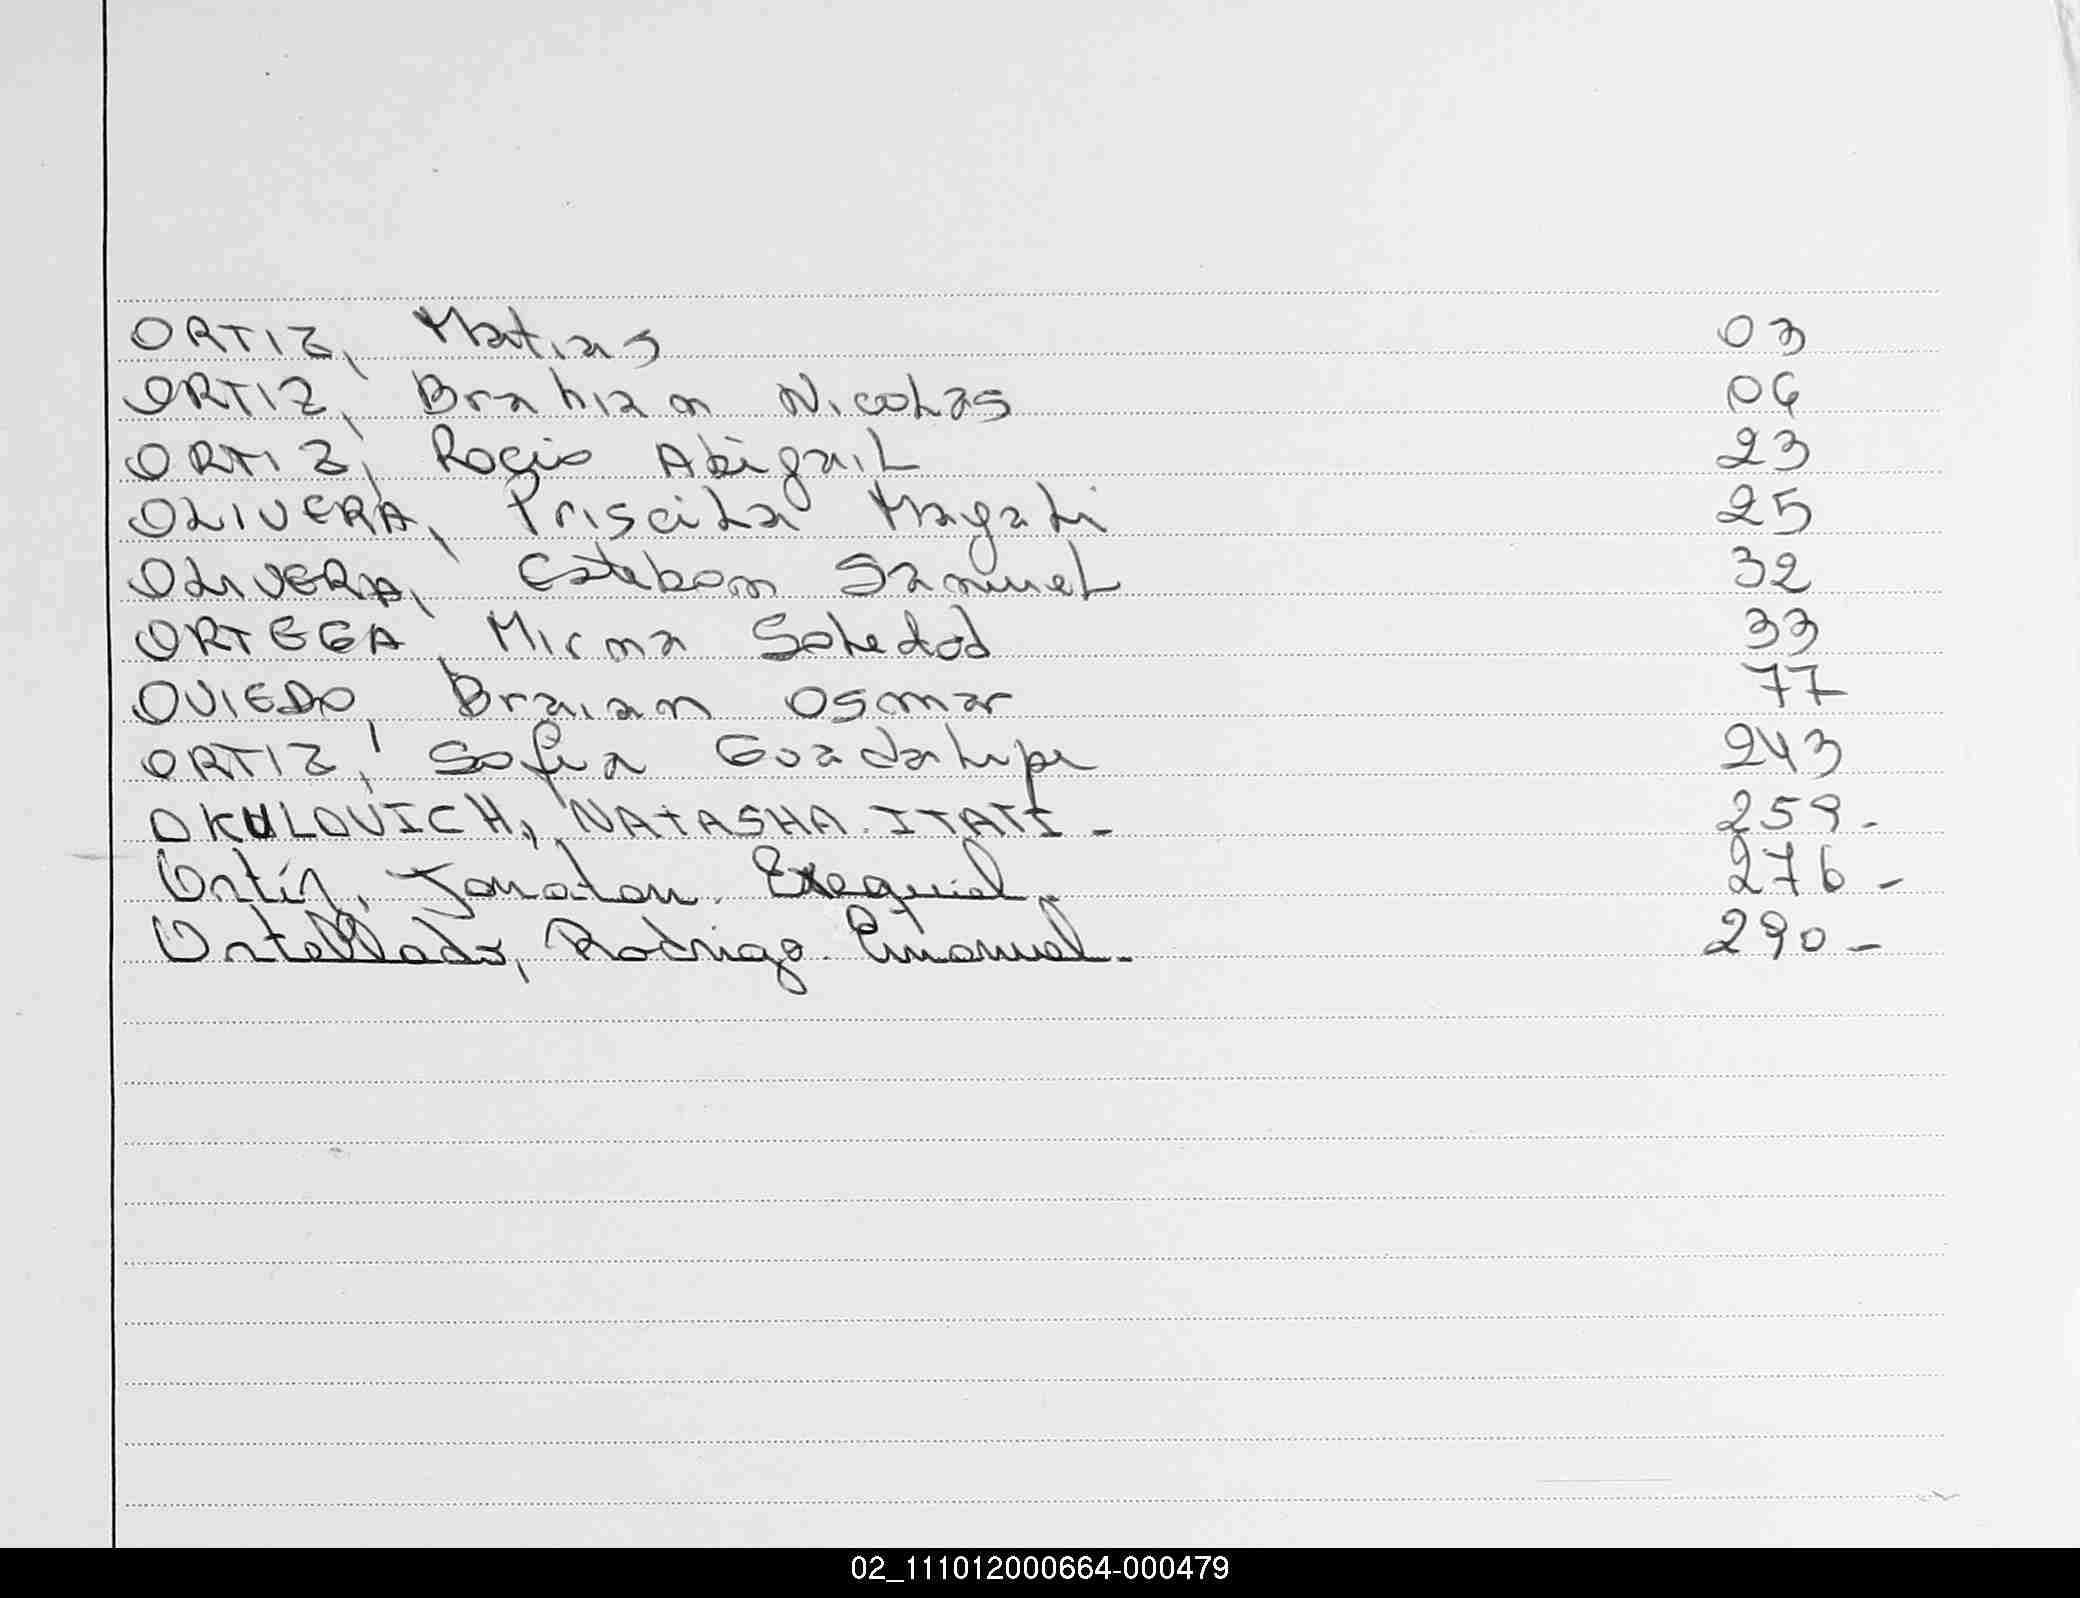 ORTIZ, Matias 03
ORTIZ, Brahian Nicolas 06
ORTIZ, Rocio Abigail 23
OLIVERA, Priscila Magali 25
OLIVERA, Esteban Samuel 32
ORTEGA, Mirna Soledad 33
OVIEDO, Braian Osmar 77
ORTIZ, Sofia Guadalupe 243
OKULOVICH, NATASHA ITATI - 259 -
Ortíz, Jonatan Exequiel - 276 -
Ortellado, Rodrigo Emanuel - 290 -
02_111012000664-000479